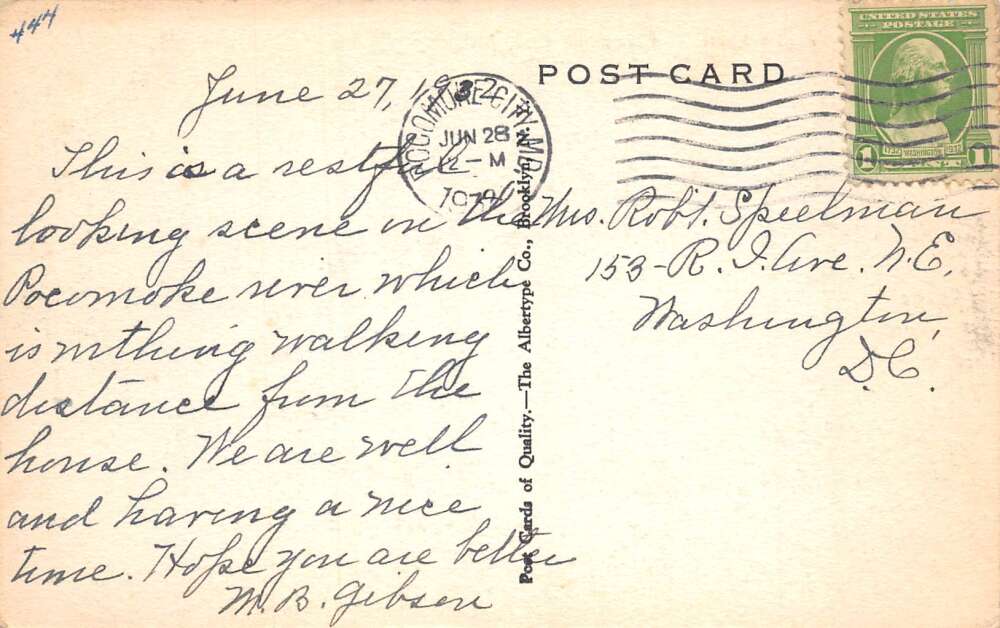 444
June 27, 1932
This is a restful
looking scene on the
Pocomoke river which
is within walking
distance from the
house. We are well
and having a nice
time. Hope you are better
M. B. Gibson
POST CARD
POCOMOKE CITY, MD.
JUN 28
12-M
UNITED STATES
POSTAGE
1732 WASHINGTON 1932
1 1
Mrs. Robt. Speelman
153-R. I. Ave. N.E.
Washington,
D.C.
Post Cards of Quality.—The Albertype Co., Brooklyn, N.